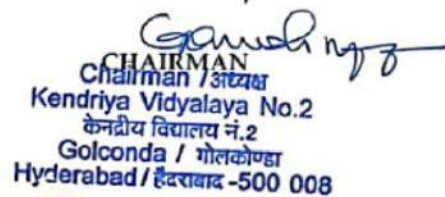 CHAIRMAN
Chairman / अध्यक्ष
Kendriya Vidyalaya No.2
केन्द्रीय विद्यालय नं.2
Golconda / गोलकोण्डा
Hyderabad / हैदराबाद -500 008